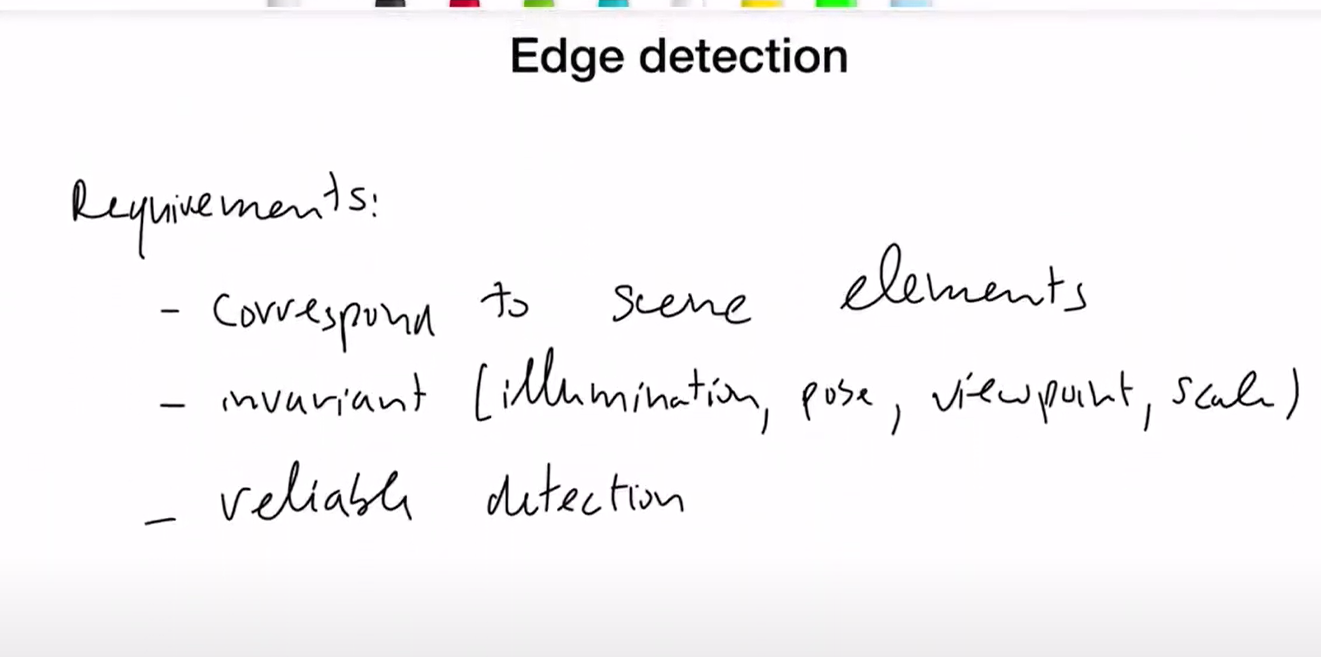 Edge detection
Requirements:
- correspond to scene elements
- invariant (illumination, pose, viewpoint, scale)
- reliable detection